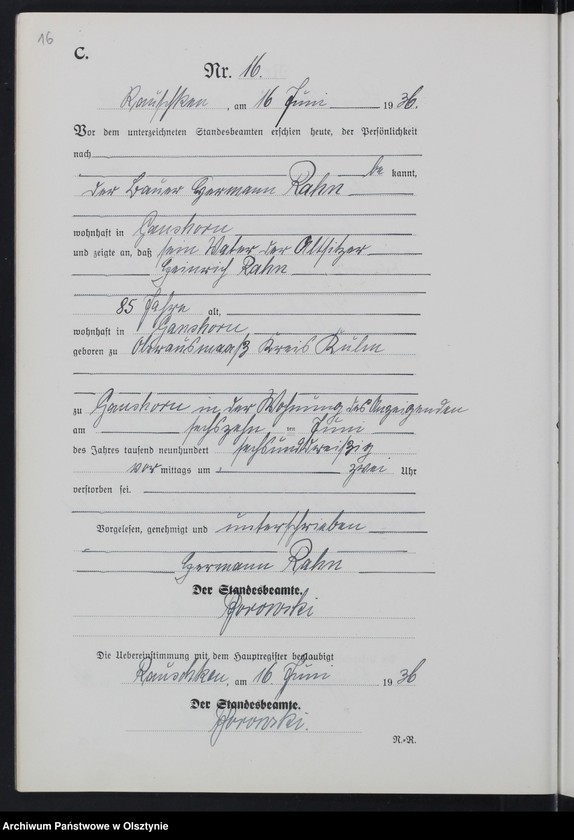 16
C.
Nr. 16.
Rauschken, am 16 Juni 1936.
Vor dem unterzeichneten Standesbeamten erschien heute, der Persönlichkeit
nach
be kannt,
der Bauer Hermann Rahn
wohnhaft in Ganshorn
und zeigte an, daß sein Vater der Altsitzer
Heinrich Rahn
85 Jahre alt,
wohnhaft in Ganshorn
geboren zu Oberausmaaß Kreis Kulm
zu Ganshorn in der Wohnung des Anzeigenden
am sechszehn ten Juni
des Jahres tausend neunhundert sechsunddreißig
vor mittags um zwei Uhr
verstorben sei.
Vorgelesen, genehmigt und unterschrieben
Hermann Rahn
Der Standesbeamte.
Borowski
Die Uebereinstimmung mit dem Hauptregister beglaubigt
Rauschken, am 16. Juni 1936
Der Standesbeamte.
Borowski.
R.-R.
Archiwum Państwowe w Olsztynie